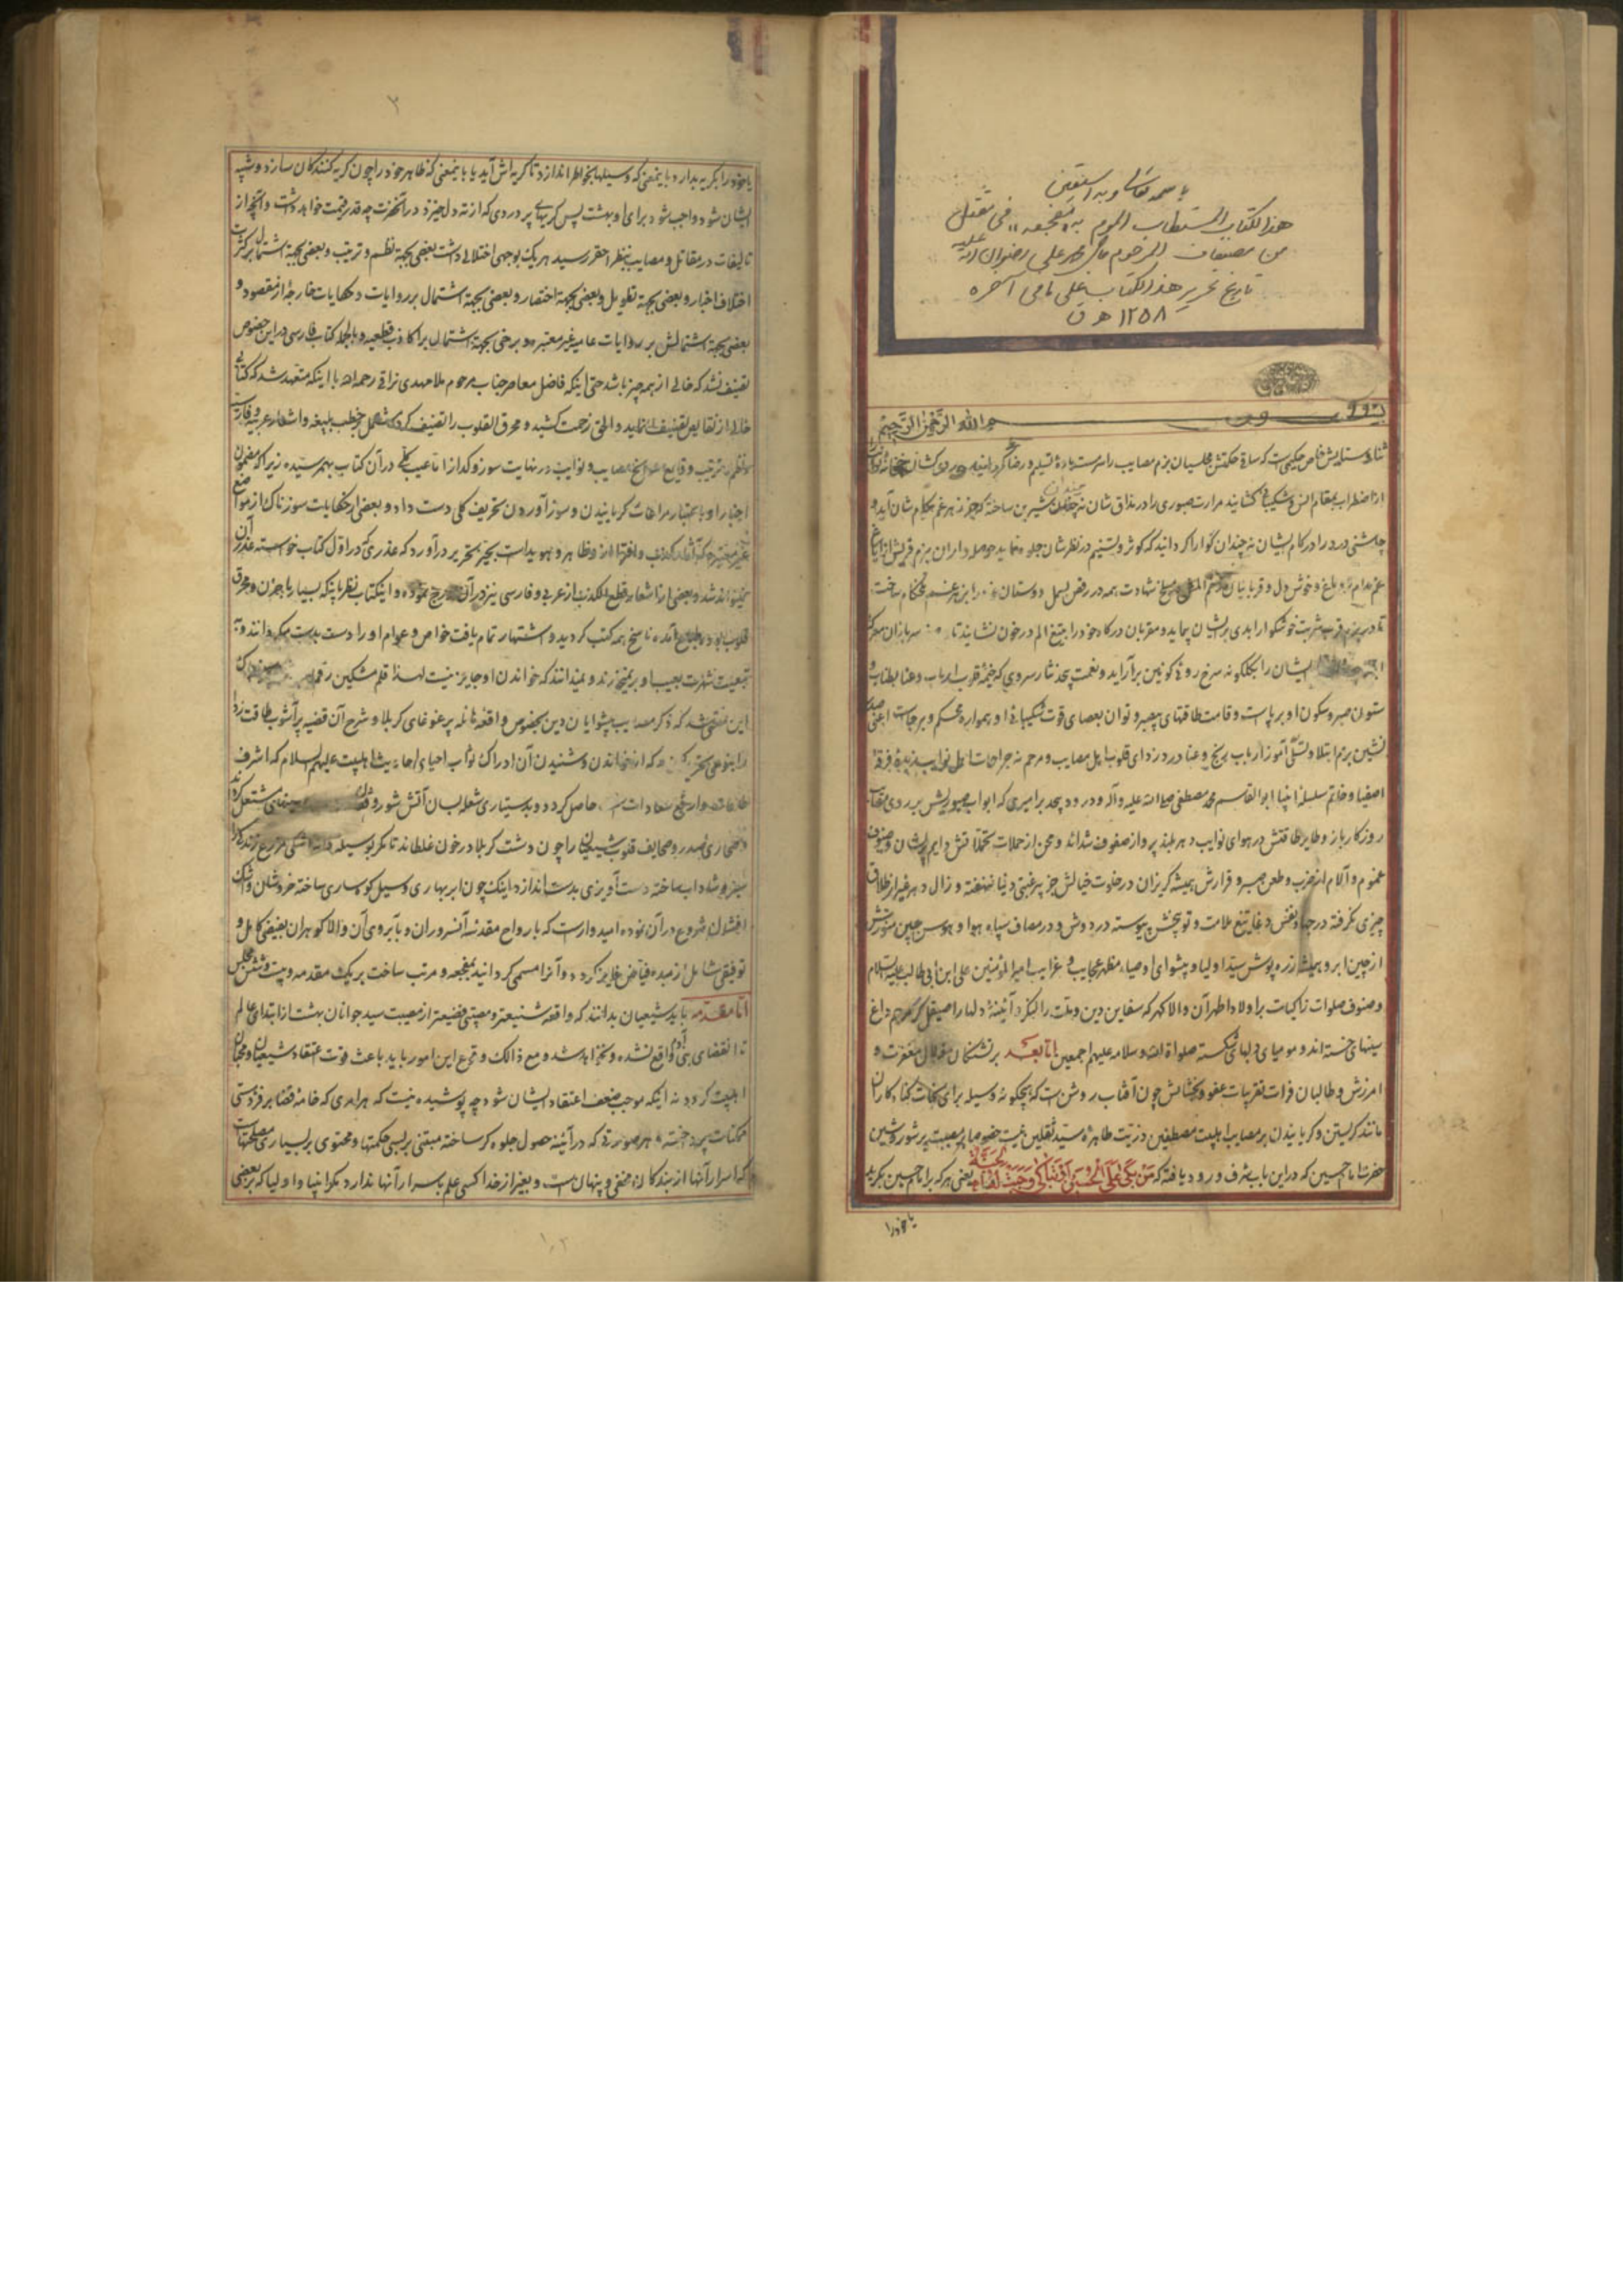 باسمه تعالی و به نستعین
هذا الکتاب المستطاب الموسوم به «مفجعه» فی مقتل
من مصنفات المرحوم محمد علی رضوان الله علیه
تاریخ تحریر هذا الکتاب علی ما فی آخره
۱۲۵۸ ه ق
بسم الله الرحمن الرحیم
ثنا و ستایش خاص حکیمی است که ساقی حکمتش مجلسیان بزم مصایب را سرمست باده تسلیم و رضا گردانیده
از اضطراب بمقام انس و شکیبائی کشانید مرارت صبوری را در مذاق شان نه چندان شیرین ساخته که جز زهر غم بکام شان آید و
چاشنی درد را در کام ایشان نه چندان گوارا گردانید که کوثر و تسنیم در نظر شان جلوه نماید
غم مدام تر دماغ و خوش دل و قربانیان شهادت همه در رقص بسمل دوستان
تا در بزم قرب شربت خوشگوار ابدی بر ایشان پیماید و مقربان درگاه خود را بتیغ الم در خون نشاید تا سربازان معرکه
ایشان را بگلگونه سرخ روئی کونین برآراید و نعمت بیحد نثار سروری که خیمه قلوب ارباب و عنا بطناب و
ستون صبر و سکون او برپاست و قامت طاقتهای بیصبر و توان بعصای قوت شکیبائی او همواره محکم و برجاست اعنی صدر
نشین بزم ابتلا و تسلی آموز ارباب رنج و عنا درد زدای قلوب اهل مصایب و مرحم نه جراحات اهل نوایب
اصفیا و خاتم سلسله انبیا ابوالقاسم محمد مصطفی صلی الله علیه و آله و درود بیحد بر امیری که ابواب صبوریش بر روی مصایب
روزگار باز و طایر طاقتش در هوای نوایب دهر بلند پرواز صفوف شداید و محن از حملات تحملاتش دایم پریشان و صنوف
غموم و آلام از ضرب و طعن صبر و قرارش همیشه گریزان در خلوت خیالش جز پیرغبتی دنیا نهفته و زال دهر غیر از طلاق
چیزی نگرفته در جهاد نفس دغا تیغ ملامت و توبیخش پیوسته در دوش و در مصاف سپاه هوا و هوس جبین منورش
از چین ابرو همیشه زره پوش سید اولیا و پیشوای اوصیاء مظهر عجایب و غرایب امیر المؤمنین علی ابن ابی طالب علیه السلام
و صنوف صلوات زاکیات بر اولاد اطهر آن والا گهر که سفاین دین و ملت را لنگر و آئینه دلها را صیقل گر مرهم داغ
سینهای خسته اند و مومیای دلهای شکسته صلوات الله و سلامه علیهم اجمعین اما بعد بر تشنگان زلال مغفرت و
امرزش و طالبان فرات تقربات عفو و بخشایش چون آفتاب روشن است که هیچکونه وسیله برای نجات گناه کاران
مانند گریستن و گریانیدن بر مصایب اهلبیت مصطفین و ذریت طاهره سید ثقلین نیست خصوصا بر مصیبت پر شور و شین
حضرت امام حسین که در این باب شرف ورود یافته که مَن بَکی عَلَی الحُسَین اَو تَباکی وَجَبَت لَهُ الجَنَّة یعنی هر که بر امام حسین بگرید
یا خود را
۲
یا خود را بگریه بدارد باینمعنی که وسیلها بخواطر اندازد تا گریه اش آید یا باینمعنی که ظاهر خود را چون گریه کنندگان سازد و شبیه
ایشان شود واجب شود برای او بهشت پس گریهای پر دردی که از ته دل خیزد در آنحضرت چه قدر قیمت خواهد داشت و آنچه از
تالیفات در مقاتل و مصایب بنظر احقر رسید هر یک بوجهی اختلالی داشت بعضی بجهة نظم و ترتیب و بعضی بجهة اشتمال بر کثرت
اختلاف اخبار و بعضی بجهة تطویل و بعضی بجهة اختصار و بعضی بجهة اشتمال بر روایات و حکایات خارجه از مقصود و
بعضی بجهة اشتمالش بر روایات عامیه غیر معتبره و برخی بجهة اشتمال بر اکاذیب قطعیه و بالجمله کتاب فارسی در این خصوص
تصنیف نشد که خالی از همه چیز باشد حتی اینکه فاضل معاصر جناب مرحوم ملا مهدی نراقی رحمه الله با اینکه متعهد شد که کتابی
خالی از نقایص تصنیف نماید و الحق زحمت کشید و محرق القلوب را تصنیف کرد که مشتمل بر خطب بلیغه و اشعار عربیه و فارسیه
و نظم و ترتیب وقایع مصایب و نوایب در نهایت سوز و گداز اما عیب کلی در آن کتاب بهم رسیده زیرا که مضمون
اخبار را و باعتبار مراعات گریانیدن و سوز آوردن تحریف کلی دست داد و بعضی از حکایات سوزناک از مواضع
غیر معتبره که آثار کذب و افترا از او ظاهر و هویداست بحیز تحریر درآورد که عذری که در اول کتاب خواسته عذر آن
نمیتواند شد و بعضی از اشعار قطع الکذب از عربی و فارسی نیز در آن درج نموده و اینکتاب نظر باینکه بسیار با حزن و محرق
قلوب بود و بطبع آمده ناسخ همه کتب گردید و اشتهار تمام یافت خواص و عوام او را دست بدست میگردانند و به
تبعیت شهرت بعیب او برنمیخورند و نمیدانند که خواندن او جایز نیست لهذا قلم مشکین رقم
این شد که ذکر مصایب پیشوایان دین بخصوص واقعه هائله پر غوغای کربلا و شرح آن قضیه پر آشوب طاقت زدا
را بنوعی تحریر کند که از خواندن و شنیدن آن ادراک ثواب احیای احادیث اهلبیت علیهم السلام که اشرف
طاعات و ارفع سعادات است حاصل گردد و بدستیاری شعله لسان آتش شور و سینهای مشتعل گردد
صدور و صحایف قلوب شیعیان را چون دشت کربلا در خون غلطاند تا مگر بوسیله اشکی مزرع زندگی را
سبز و شاداب ساخته دست آویزی بدست اندازد اینک چون ابر بهاری و سیل کوهساری ساخته خروشان و اشک
افشان شروع در آن نموده امیدوار است که بارواح مقدسه آنسروران و بآبروی آن والا گوهران بفیضی کامل و
توفیقی شامل از مبدء فیاض فایز گردد و آنرا مسمی گردانید بمفجعه و مرتب ساخت بر یک مقدمه و بیست و شش مجلس
اما مقدمه باید شیعیان بدانند که واقعه شنیعتر و مصیبتی فضیعتر از مصیبت سید جوانان بهشت از ابتدای عالم
تا انقضای بنی آدم واقع نشده و نخواهد شد و مع ذالک وقوع این امور باید باعث قوت اعتقاد شیعیان و محبان
اهلبیت گردد نه اینکه موجب ضعف اعتقاد ایشان شود چه پوشیده نیست که هر امری که خامه قضا بر فرد هستی
ممکنات پرداخته و هر صورتی که در آئینه حصول جلوه گر ساخته مبتنی بر بسی حکمتها و محتوی بر بسیاری مصلحتهاست
که اسرار آنها از بندگان مخفی و پنهان است و بغیر از خدا کسی علم باسرار آنها ندارد مگر انبیا و اولیا که بر بعضی